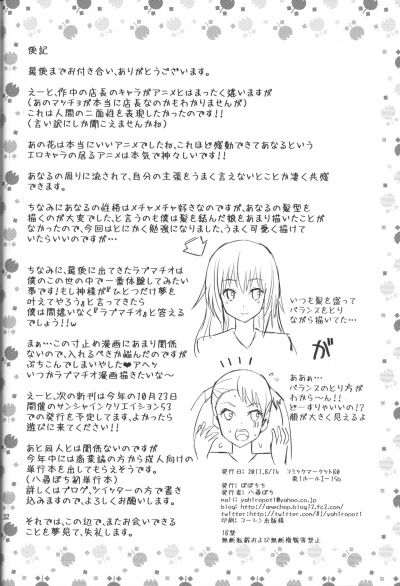 後記
最後までお付き合い、ありがとうございます。
えーと、作中の店長のキャラがアニメとはまったく違いますが
(あのマッチョが本当に店長なのかもわかりませんが)
これは人間の二面性を表現したかったのです!!
(言い訳にしか聞こえませんかね)
あの花は本当にいいアニメでしたね、これほど感動できてあなるという
エロキャラの居るアニメは本気で神々しいです!!
あなるの周りに流されて、自分の主張をうまく言えないとこが凄く共感
できます。
ちなみにあなるの性格はメチャメチャ好きなのですが、あなるの髪型を
描くのが大変でした、と言うのも僕は髪を結んだ娘をあまり描いたことが
なかたので、今回はとにかく勉強になりました、うまく可愛く描けて
いたらいいのですが…
ちなみに、最後に出てきたラブマチオは
僕のこの世の中で一番体験してみたい
事です!もし神様が『ひとつだけ夢を
叶えてやろう』と言ってきたら
僕は間違いなく『ラブマチオ』と答える
でしょう!!w
まぁ…この寸止め漫画にあまり関係
ないので、入れるべきか悩んだのですが
ぶちこんでしまいやした♥アヘッ
いつかラブマチオ漫画描きたいな~
えーと、次の新刊は今年の10月23日
開催のサンシャインクリエイション53
での発行を予定してます、よかったら
遊びに来てください!!
あと同人とは関係ないのですが
今年中には商業誌の方から成人向けの
単行本を出してもらえそうです。
(八尋ぽち初単行本)
詳しくはブログ、ツイッターの方で書き
込みますので、よろしくお願いします。
それでは、この辺で、またお会いできる
ことを夢見て、失礼します。
いつも髪を盛って
バランスをとり
ながら描いてた…
が
ああぁ…
バランスのとり方が
わから~ん!!
どーすりゃいいの!?
顔が大きく見えるよ
発行日:2011,8/14 コミックマーケット80
東1ホールエ-19b
発行:ぽぽちち
発行者:八尋ぽち
mail: yahiropoti@yahoo.co.jp
blog: http://amechop.blog72.fc2.com/
twitter:http://twitter.com/#!/yahiropoti
印刷:コーシン出版様
18禁
無断転載および無断複製等禁止
32